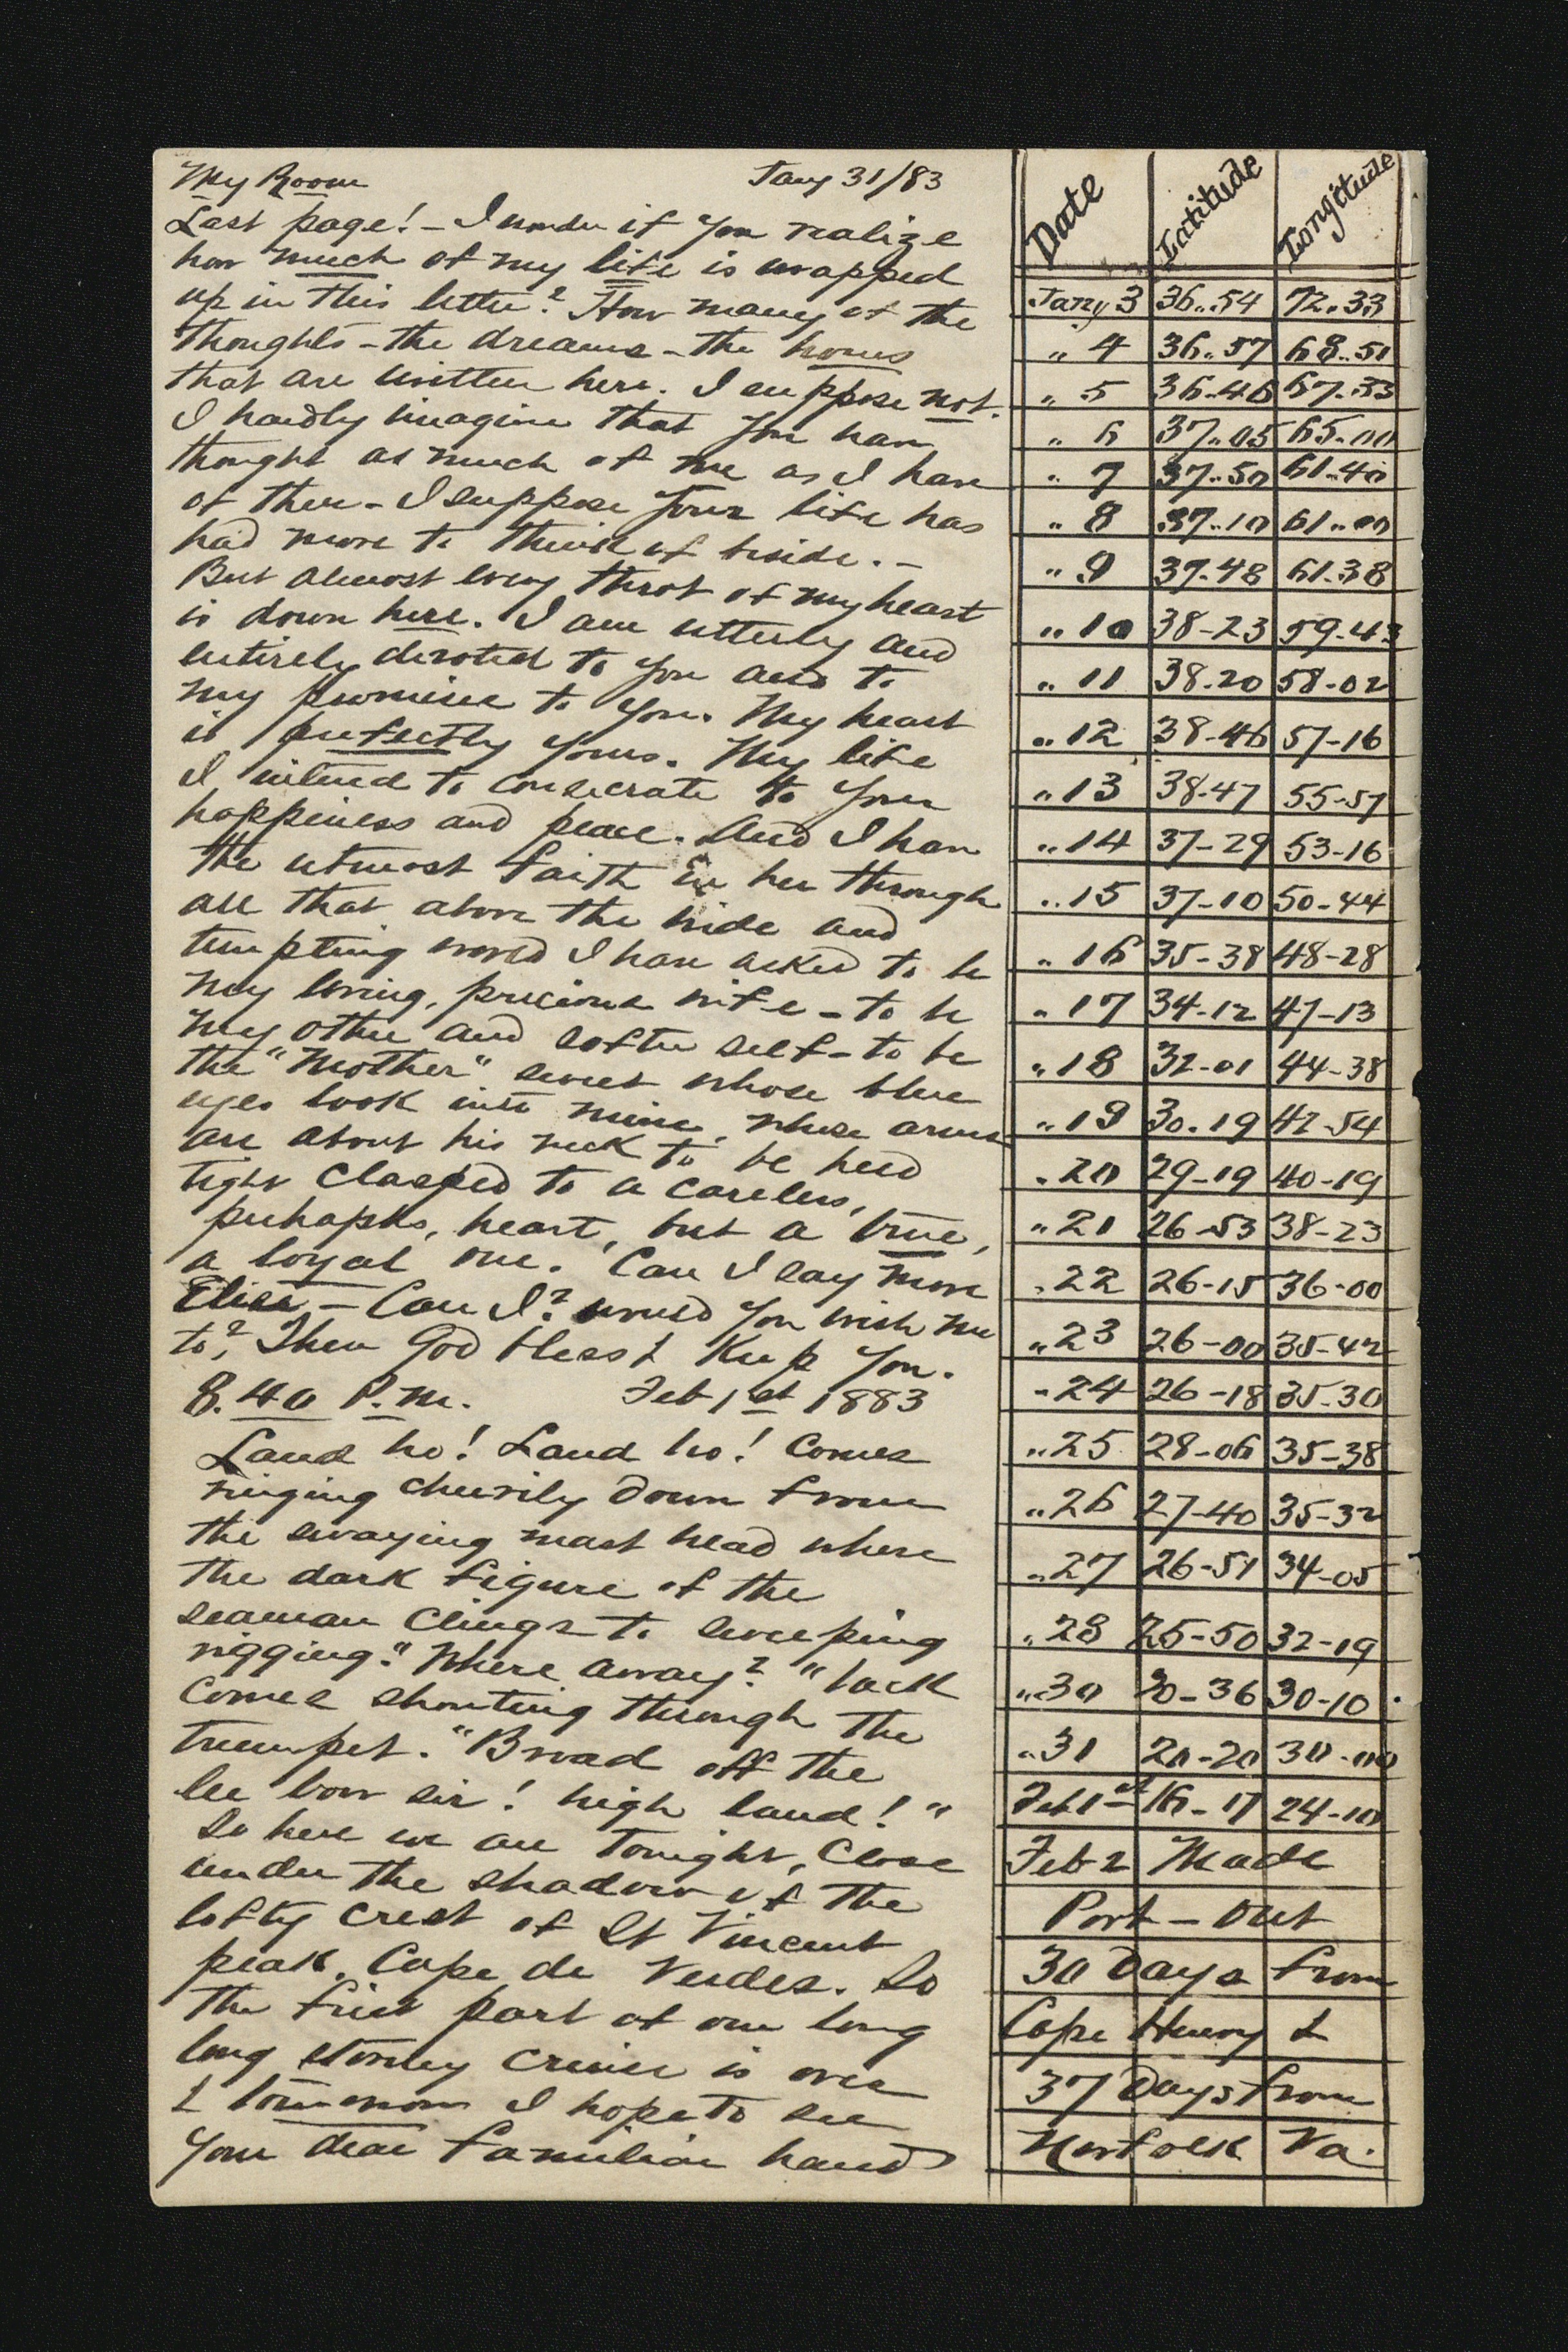 My Room Jany 31/83
Last page! - I wonder if you realize
how much of my life is wrapped
up in this letter? How many of the
thoughts - the dreams - the hours
that are written here. I suppose not.
I hardly imagine that you have
thought as much of me as I have
of thee - I suppose your life has
had more to think of beside. -
But almost every throb of my heart
is down here. I am utterly and
entirely devoted to you and to
my promise to you. My heart
is perfectly yours. My life
I intend to consecrate to your
happiness and peace. And I have
the utmost faith in her through
all that above the wide and
tempting world I have asked to be
my loving, precious wife - to be
my other and softer self - to be
the "Mother" sweet whose blue
eyes look into mine, whose arms
are about his neck to be held
tight clasped to a careless,
perhapss, heart, but a true,
a loyal one. Can I say more
Elise - Can I? would you wish me
to? Then God bless & Keep you.
8.40 P.M. Feb 1st 1883
Land ho! Land ho! Comes
ringing cheerily down from
the swaying mast head where
the dark figure of the
seaman clings to sweeping
rigging. "Where away?" back
comes shouting through the
trumpet. "Broad off the
lee bow sir! high land!"
So here we are tonight, close
under the shadow of the
lofty crest of St Vincent
peak. Cape de Verdes. So
the first part of our long
long stormy cruise is over
& tomorrow I hope to see
your dear familiar hand
Date Latitude Longitude
Jany 3 36..54 72.33
" 4 36..57 68..51
" 5 36-46 67-33
" 6 37..05 65-00
" 7 37..50 61..40
" 8 37..10 61..00
" 9 37-48 61-38
" 10 38-23 59-43
" 11 38-20 58-02
" 12 38-46 57-16
" 13 38-47 55-57
" 14 37-29 53-16
" 15 37-10 50-44
" 16 35-38 48-28
" 17 34-12 47-13
" 18 32-01 44-38
" 19 30.19 42-54
" 20 29-19 40-19
" 21 26-53 38-23
" 22 26-15 36-00
" 23 26-00 35-42
" 24 26-18 35-30
" 25 28-06 35-38
" 26 27-40 35-32
" 27 26-51 34-05
" 28 25-50 32-19
" 30 20-36 30-10
" 31 20-20 30-00
Feb 1st 16-17 24-10
Feb 2 Made
Port - Out
30 Days from
Cape Henry &
37 Days from
Norfolk Va.